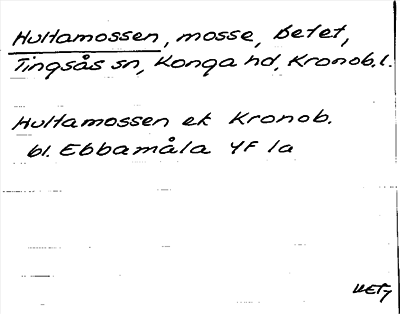 Hultamossen, mosse, betet,
Tingsås sn, Konga hd, Kronob.l.
Hultamossen ek Kronob.
bl. Ebbamåla 4F 1a